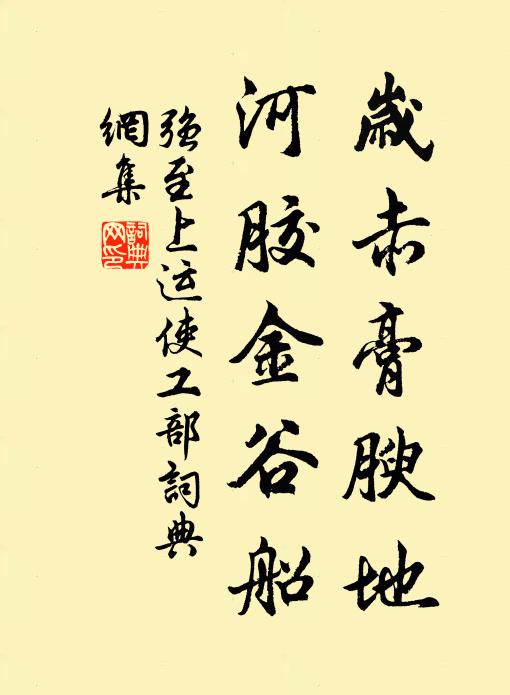 歲赤膏腴地
河胶金谷船
强至上运使工部詞典
網集
詞典
网印